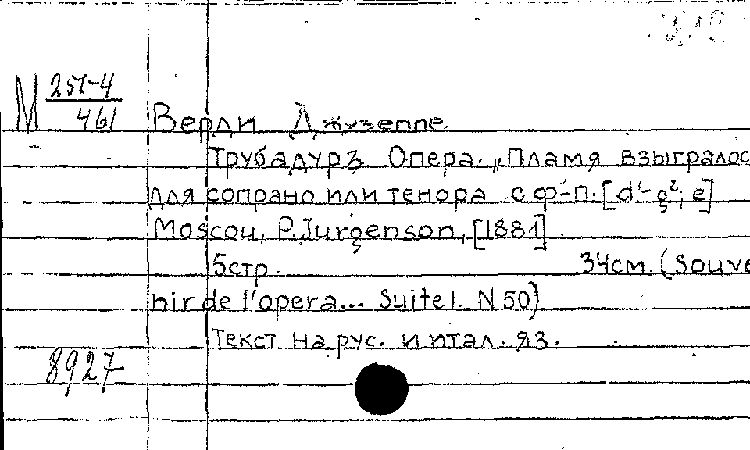 М 251-4
461
Верди Джузеппе
Трубадуръ Опера. „Пламя взыгралос
для сопрано или тенора с ф-п. [d¹-g²; e]
Moscou, P. Jurgenson, [1881]
5стр. 34см. (Souve
nir de l'opera... Suite 1. N 50)
Текст на рус. и итал. яз.
8927